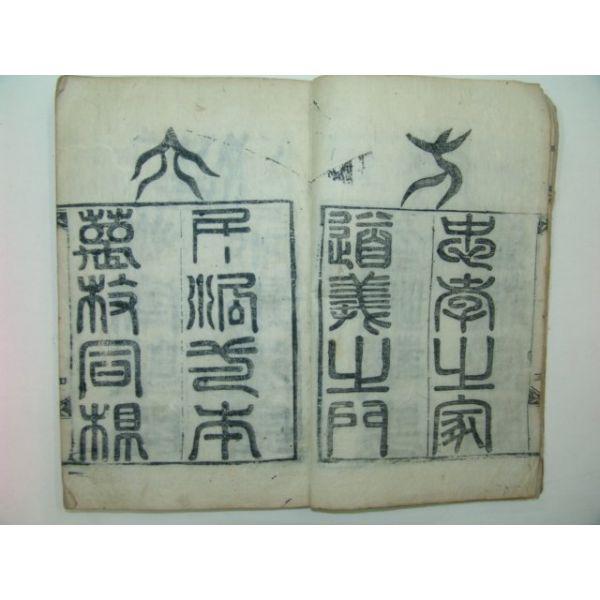 忠孝之家
道義之門
千派本
萬枝同根